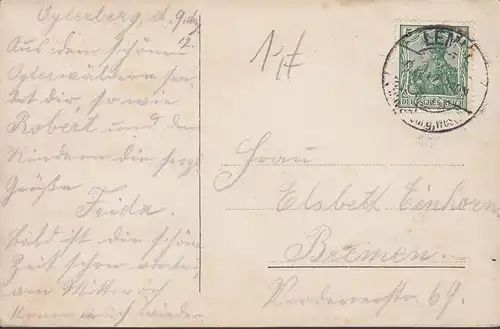 Oylerberg, d. 9.
12.
Aus den schönen
Oylerwäldern sen-
det dir, so wie
Robert und den
Kindern die herzl.
Grüße
Frida.
Bald ist die schöne
Zeit schon vorbei,
am Mittwoch
komm ich wieder
1 M
DEUTSCHES REICH
Frau
Elsbeth Einhorn
Bremen.
69.